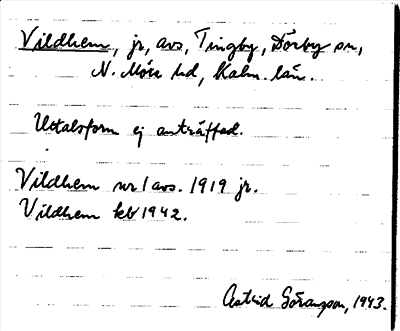 Vildhem, jr, avs, Tingby, Dörby sn,
N. Möre hd, Kalm. län.
Uttalsform ej anträffad.
Vildhem nr 1 avs. 1919 jr.
Vildhem kb 1942.
Astrid Göransson, 1943.